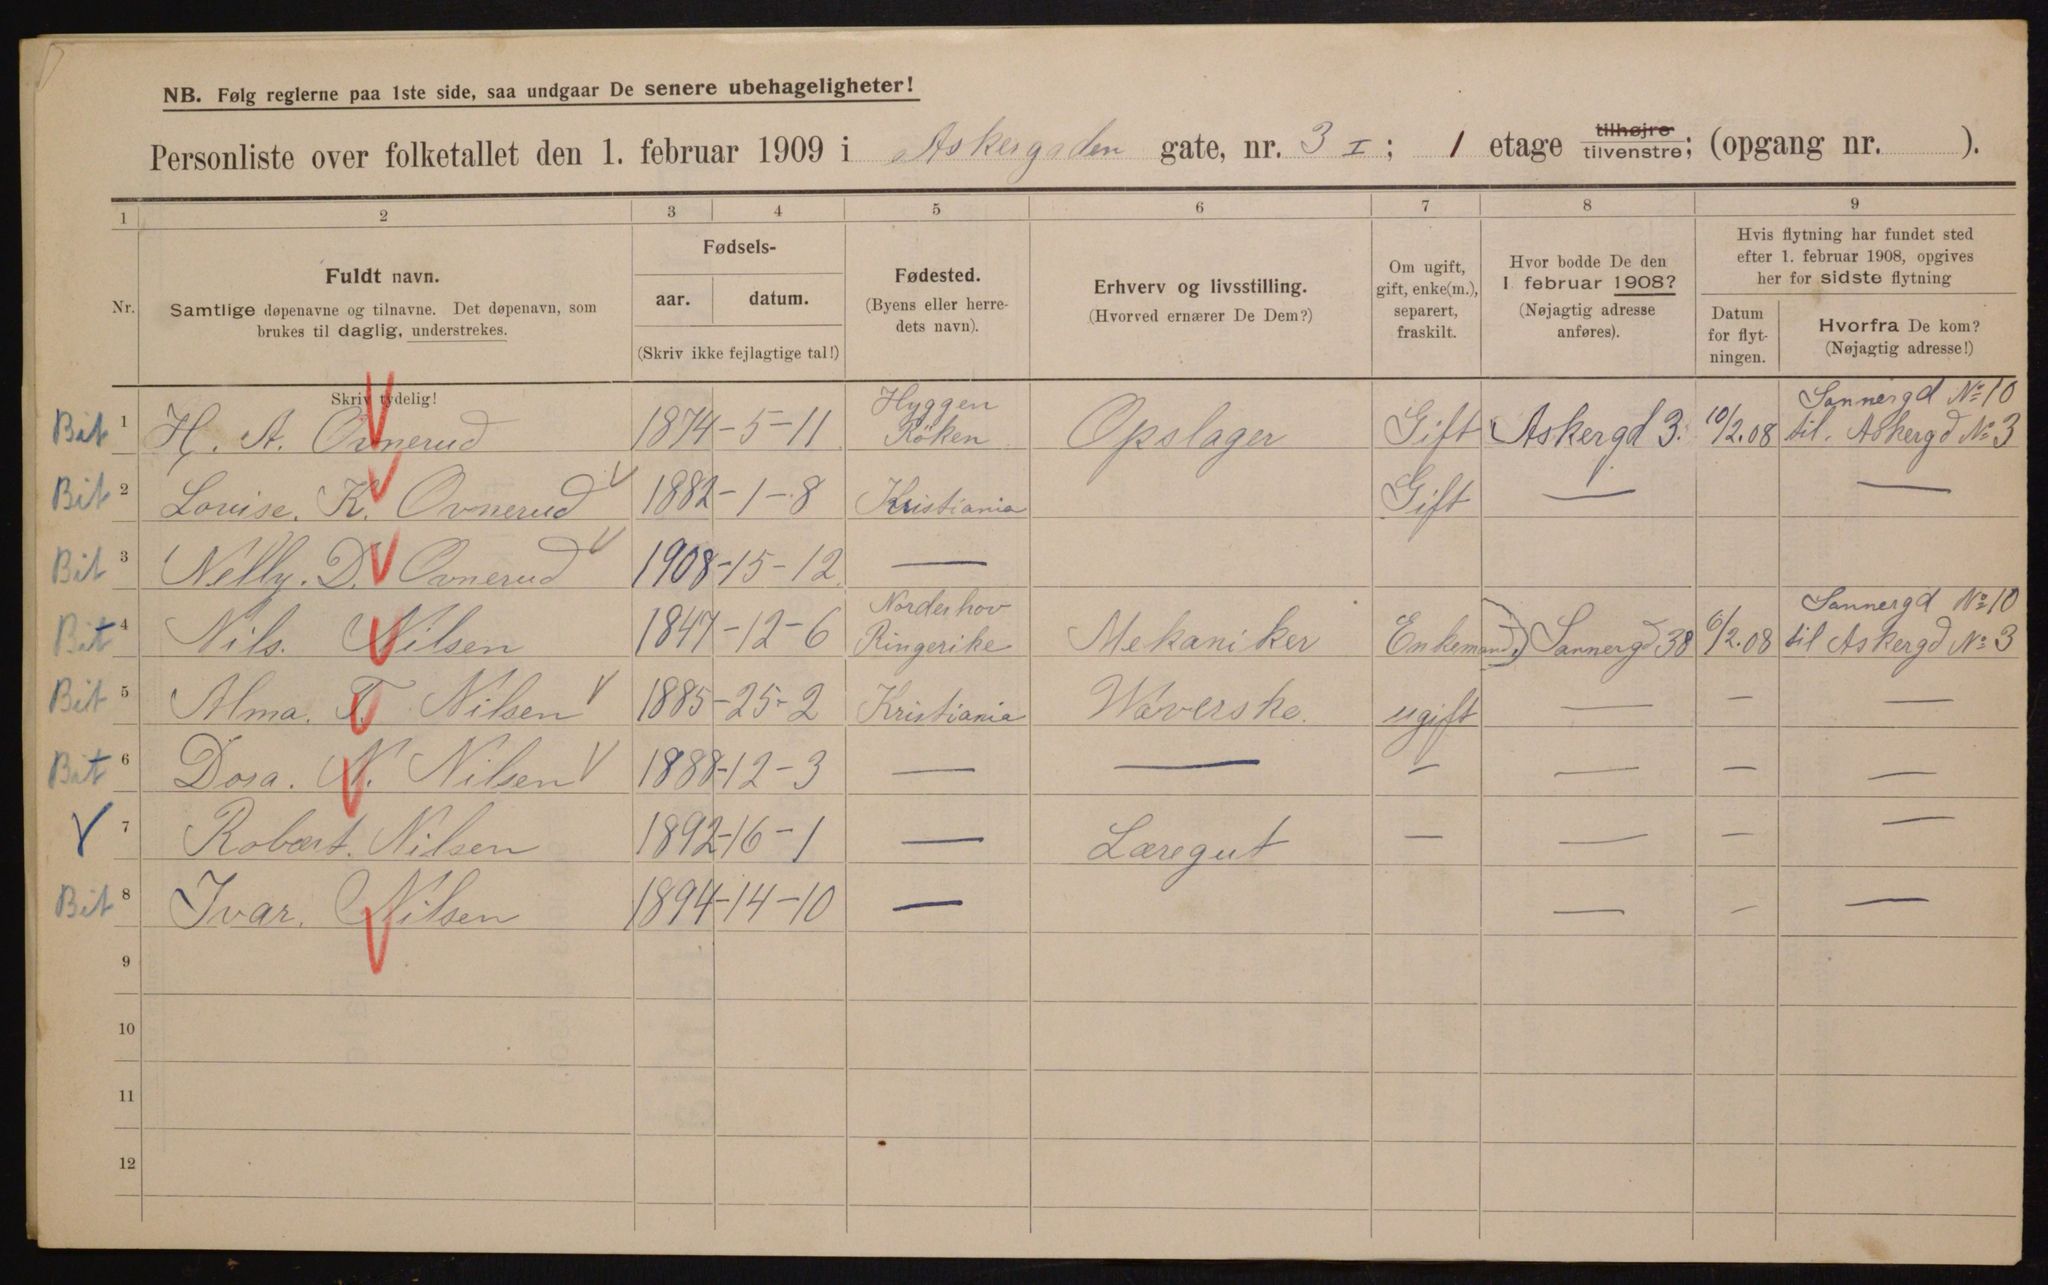 NB. Følg reglerne paa 1ste side, saa undgaar De senere ubehageligheter!
Personliste over folketallet den 1. februar 1909 i Askergaden gate, nr. 3 I; 1 etage tilhøjre tilvenstre; (opgang nr. ).
1 2 3 4 5 6 7 8 9
Nr.
Fuldt navn.
Samtlige døpenavne og tilnavne. Det døpenavn, som
brukes til daglig, understrekes.
Skriv tydelig!
Fødsels-
aar. datum.
(Skriv ikke fejlagtige tal!)
Fødested.
(Byens eller herre-
dets navn).
Erhverv og livsstilling.
(Hvorved ernærer De Dem?)
Om ugift,
gift, enke(m.),
separert,
fraskilt.
Hvor bodde De den
1 februar 1908?
(Nøjagtig adresse
anføres).
Hvis flytning har fundet sted
efter 1. februar 1908, opgives
her for sidste flytning
Datum
for flyt-
ningen.
Hvorfra De kom?
(Nøjagtig adresse!)
Bit 1 H. A. Ovnerud 1874-5-11 Hyggen Röken Opslager Gift Askergd 3. 10/2.08 Sannergd No 10 til. Askergd No 3
Bit 2 Lovise. K. Ovnerud V 1882-1-8 Kristiania Gift — —
Bit 3 Nelly. D. Ovnerud V 1908-15-12 —
Bit 4 Nils. Nilsen 1847-12-6 Norderhov Ringerike Mekaniker Enkemand. Sannergd 38 6/2.08 Sannergd No 10 til Askergd No 3
Bit 5 Alma. T. Nilsen V 1885-25-2 Kristiania Væverske. ugift — — —
Bit 6 Dora. N. Nilsen V 1888-12-3 — — — — — —
V 7 Robært. Nilsen 1892-16-1 — Læregut — — — —
Bit 8 Ivar. Nilsen 1894-14-10 — — — —
9
10
11
12